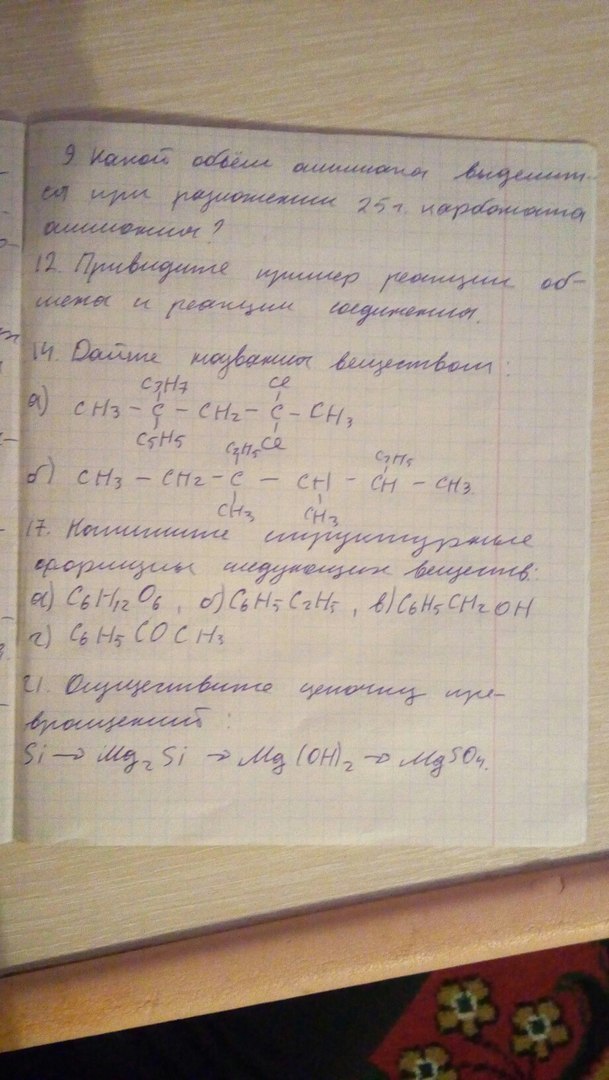 9 Какой объём аммиака выделит-
ся при разложении 25 г. карбоната
аммония?
12. Приведите пример реакции об-
мена и реакции соединения.
14. Дайте названия веществам:
C3H7 Cl
а) CH3 - C - CH2 - C - CH3
C5H5 Cl
C2H5 C2H5
б) CH3 - CH2 - C - CH - CH - CH3
CH3 CH3
17. Напишите структурные
формулы следующих веществ:
а) C6H12O6, б) C6H5C2H5, в) C6H5CH2OH
г) C6H5COCH3
21. Осуществите цепочку пре-
вращений:
Si → Mg2Si → Mg(OH)2 → MgSO4.